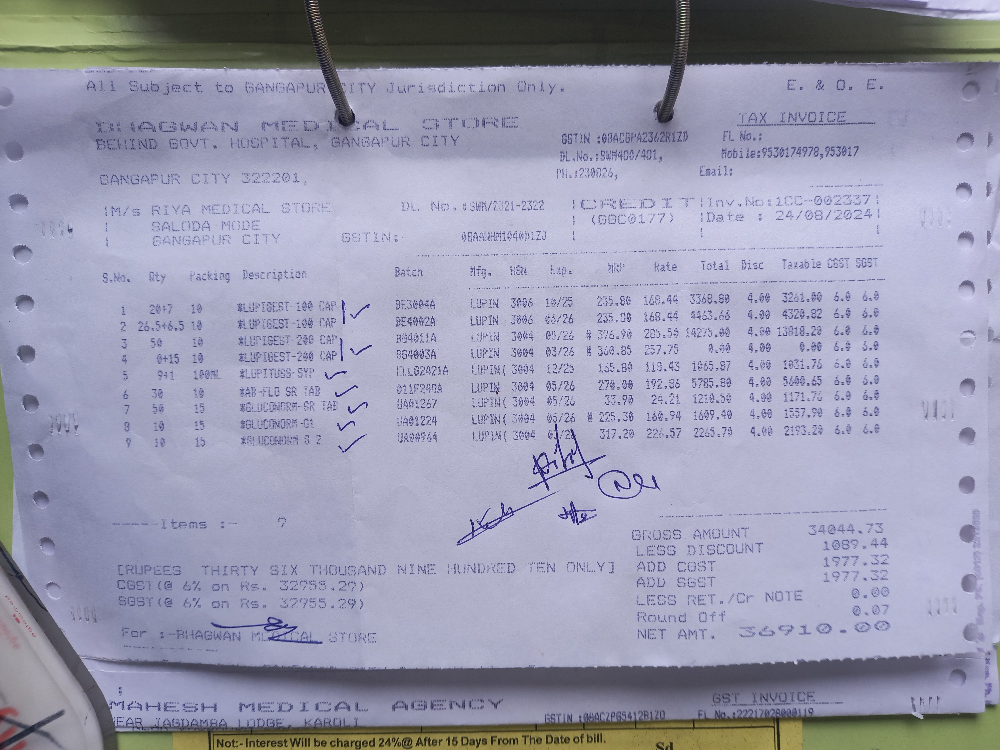 All Subject to GANGAPUR CITY Jurisdiction Only.
E. & O. E.
BHAGWAN MEDICAL STORE
BEHIND GOVT. HOSPITAL, GANGAPUR CITY
GANGAPUR CITY 322201,
GSTIN :08ACBPA2362R1ZD
DL.No.:SWM400/401,
PH.:230826,
TAX INVOICE
FL No.:
Mobile:9530174978,953017
Email:
M/s RIYA MEDICAL STORE
SALODA MODE
GANGAPUR CITY
DL No.:SWM/2321-2322
GSTIN:-
CREDIT
(GGC0177)
Inv.No:1CC-002337
Date : 24/08/2024
S.No. Qty Packing Description Batch Mfg. HSN Exp. MRP Rate Total Disc Taxable CGST SGST
1 20+7 10 *LUPIGEST-100 CAP DE3004A LUPIN 3006 10/25 235.80 168.44 3368.80 4.00 6.0 6.0
2 26.5+6.5 10 *LUPIGEST-100 CAP DE4002A LUPIN 3006 235.80 168.44 4463.66 4.00 6.0 6.0
3 50 10 *LUPIGEST-200 CAP BG4011A LUPIN 3004 05/26 # 285.50 14275.00 4.00 6.0 6.0
4 0+15 10 *LUPIGEST-200 CAP BG4003A LUPIN 3004 03/26 # 360.85 257.75 0.00 4.00 0.00 6.0 6.0
5 9+1 100ML *LUPITUSS-SYP LUPIN( 3004 12/25 165.80 118.43 1065.87 4.00 6.0 6.0
6 30 10 *AB-FLO SR TAB LUPIN 3004 05/26 270.00 192.86 5785.80 4.00 6.0 6.0
7 50 15 *GLUCONORM-SR TAB UA01267 LUPIN( 3004 05/26 33.90 24.21 1210.50 4.00 6.0 6.0
8 10 15 *GLUCONORM-G1 UA01224 LUPIN( 3004 05/26 # 225.30 160.94 1609.40 4.00 6.0 6.0
9 10 15 *GLUCONORM G 2 LUPIN( 3004 317.20 226.57 2265.70 4.00 6.0 6.0
-----Items :- 7
GROSS AMOUNT 34044.73
LESS DISCOUNT 1089.44
[RUPEES THIRTY SIX THOUSAND NINE HUNDRED TEN ONLY]
ADD CGST 1977.32
CGST(@ 6% on Rs. 32955.29)
ADD SGST 1977.32
SGST(@ 6% on Rs. 32955.29)
LESS RET./Cr NOTE 0.00
Round Off 0.07
For :-BHAGWAN MEDICAL STORE
NET AMT. 36910.00
MAHESH MEDICAL AGENCY
GST INVOICE
NEAR JAGDAMBA LODGE, KAROLI
GSTIN :08ACZPG5412B1ZO
FL No.:22217028000119
Not:- Interest Will be charged 24%@ After 15 Days From The Date of bill.
Sd